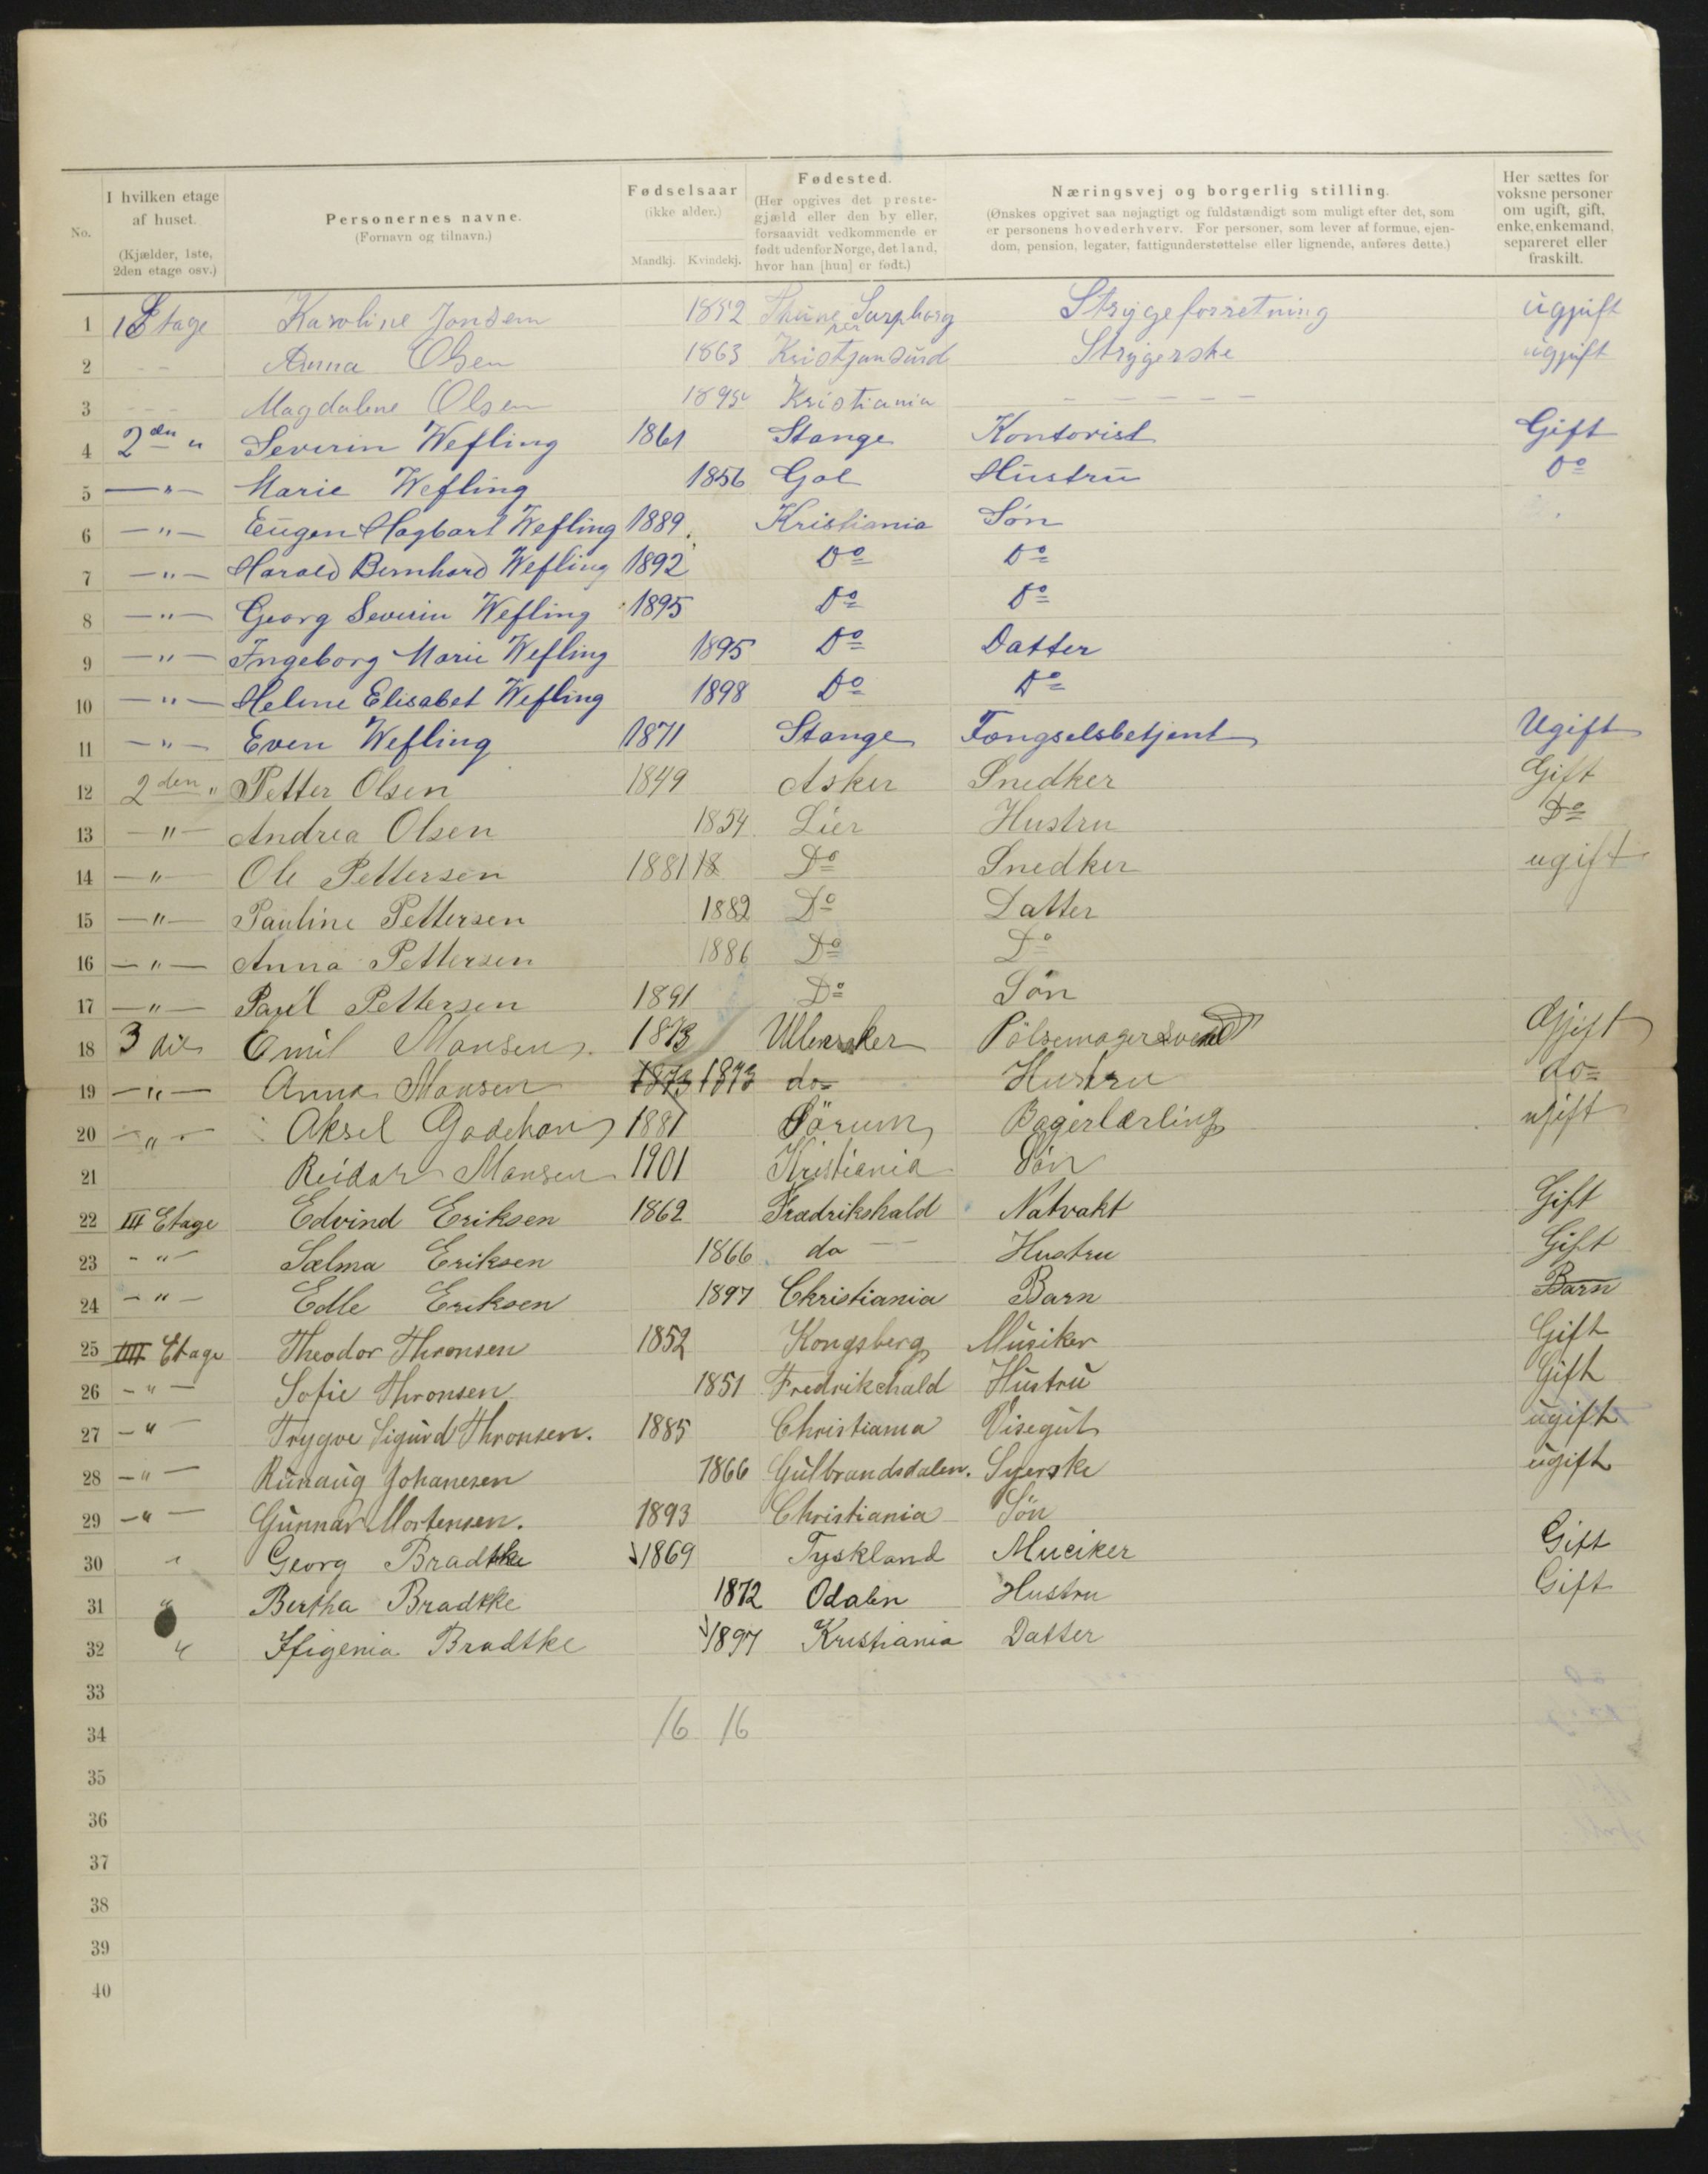 No.
I hvilken etage af huset.
(Kjælder, 1ste, 2den etage osv.)
Personernes navne.
(Fornavn og tilnavn.)
Fødselsaar
(ikke alder.)
Mandkj. Kvindekj.
Fødested.
(Her opgives det prestegjæld eller den by eller, forsaavidt vedkommende er født udenfor Norge, det land, hvor han [hun] er født.)
Næringsvej og borgerlig stilling.
(Ønskes opgivet saa nøjagtigt og fuldstændigt som muligt efter det, som er personens hovederhverv. For personer, som lever af formue, ejendom, pension, legater, fattigunderstøttelse eller lignende, anføres dette.)
Her sættes for voksne personer om ugift, gift, enke, enkemand, separeret eller fraskilt.
1 1 Etage Karoline Jonsen 1852 Thune per Sarpborg Strygeforretning ugjift
2 - - Anna Olsen 1863 Kristjansund Strygerske ugjift
3 - - - Magdalene Olsen Kristiania - - - - -
4 2den " Severin Wefling 1861 Stange Kontorist Gift
5 —"— Marie Wefling 1856 Gol Hustru Do
6 —"— Eugen Hagbart Wefling 1889 Kristiania Søn
7 —"— Harald Bernhard Wefling 1892 Do Do
8 —"— Georg Severin Wefling 1895 Do Do
9 —"— Ingeborg Marie Wefling 1895 Do Datter
10 —"— Helene Elisabet Wefling 1898 Do Do
11 —"— Even Wefling 1871 Stange Fængselsbetjent Ugift
12 2den " Petter Olsen 1849 Asker Snedker Gift
13 —"— Andrea Olsen 1854 Lier Hustru Do
14 —"— Ole Pettersen 1881 18 Do Snedker ugift
15 —"— Pauline Pettersen 1882 Do Datter
16 —"— Anna Pettersen 1886 Do Do
17 —"— Paul Pettersen 1891 Do Søn
18 3 Emil Mansen 1873 Ullensaker Pölsemagersvend Gjift
19 —"— Anna Mansen 1873 1873 do= Hustru do=
20 —"— Aksel 1881 Sörum Bagerlærling ugift
21 Reidar Mansen 1901 Kristiania Sön
22 III Etage Edvind Eriksen 1862 Fredrikshald Natvakt Gift
23 - "— Selma Eriksen 1866 do — Hustru Gift
24 - "— Edle Eriksen 1897 Christiania Barn Barn
25 IIII Etage Theodor Thronsen 1852 Kongsberg Musiker Gift
26 - "— Sofie Thronsen 1851 Fredrikshald Hustru Gift
27 - " Trygve Sigurd Thronsen. 1885 Christiania Visegut ugift
28 -"— Runaug Johanesen 1866 Gulbrandsdalen. Syerske ugift
29 -"— Gunnar Mortensen. 1893 Christiania Søn
30 " Georg Bradtke 1869 Tyskland Muciker Gift
31 " Bertha Bradtke 1872 Odalen Hustru Gift
32 " Ifigenia Bradtke 1897 Kristiania Datter
33
34 16 16
35
36
37
38
39
40